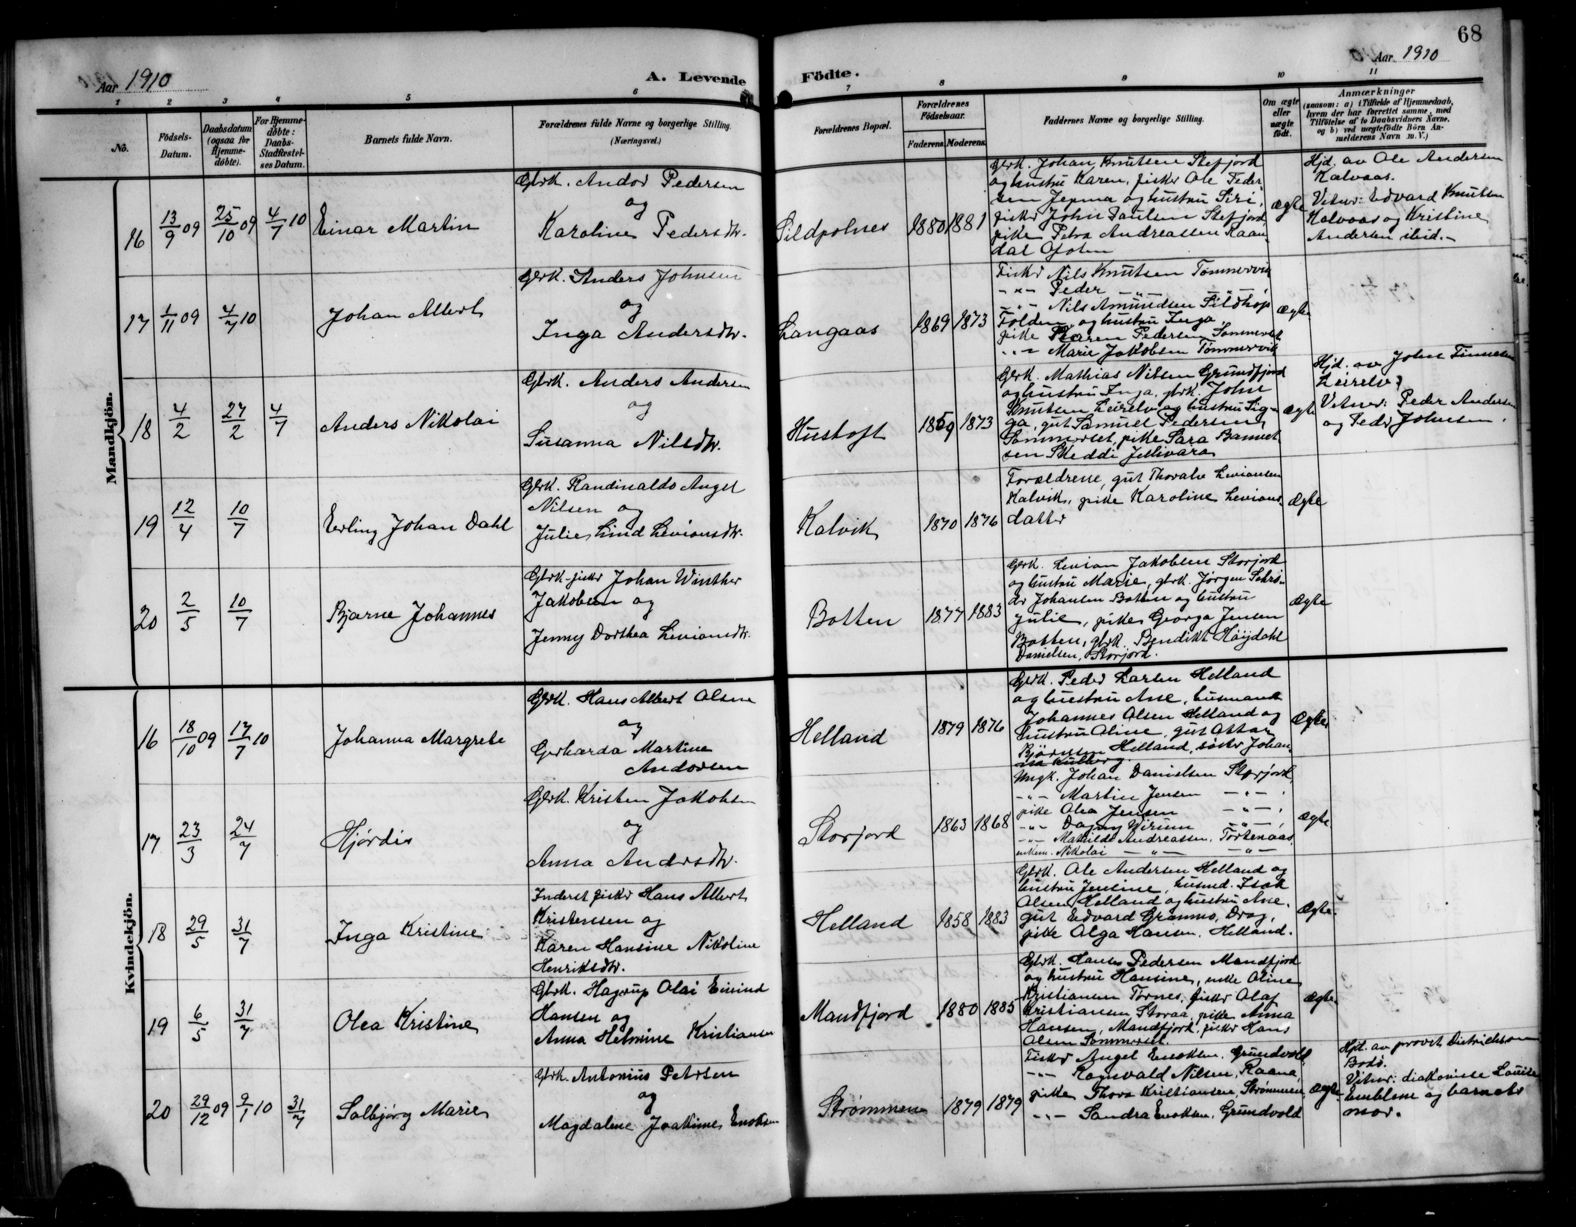 68
Aar 1910
A. Levende
Fødte.
Aar 1910
1 2 3 4 5 6 7 8 9 10 11
No.
Fødsels-
Datum.
Daabsdatum
(ogsaa for
Hjemme-
døbte).
For Hjemme-
døbte:
Daabs-
Stadfæstel-
ses Datum.
Barnets fulde Navn.
Forældrenes fulde Navne og borgerlige Stilling
(Næringsvei.)
Forældrenes Bopæl.
Forældrenes
Fødselsaar.
Faderens. Moderens.
Faddernes Navne og borgerlige Stilling.
Om ægte
eller
uægte
født.
Anmærkninger
(saasom: a) i Tilfælde af Hjemmedaab,
hvem der har forrettet samme, med
Tilføielse af to Daabsvidners Navne,
og b) ved uægtefødte Børn An-
melderens Navn m. V.)
Mandkjøn.
16
13/9 09
25/10 09
4/7 10
Einar Martin
Gbrk. Andor Pedersen
og
Karoline Pedersdtr.
Sildpolnes
1880 1881
Gbrk. Johan Knutsen Stefjord
og hustru Karen, fisker Ole Peder-
sen Jegma og hustru Siri,
fisker John Paulsen Stefjord
pike Petra Andreassen Raan-
dal Ofoten
ægte
Hjd. av Ole Andersen
Kalvaas.
Vitner: Edvard Knutsen
Kalvaas og Kristine
Andersen ibid.
17
1/11 09
4/7 10
Johan Albert
Gbrk. Anders Johnsen
og
Inga Andersdtr.
Langaas
1869 1873
Fisker Nils Knutsen Tømmervik
-"- Peder -"- -"-
-"- Nils Amundsen Sildhop
Folden og hustru Inga
pike Karen Pedersen Sommerset
-"- Marie Jakobsen Tømmervik
ægte
18
4/2
27/2
4/7
Anders Nikolai
Gbrk. Anders Andersen
og
Susanna Nilsdtr.
Hustoft
1859 1873
Gbrk. Mathias Nilsen Grundfjord
og hustru Inga, gbrk. John
Knutsen Leirelv og hustru Sig-
ga, gut Samuel Pedersen,
Sommerset, pike Sara
Skeddi Jellivara
ægte
Hjd. av John Finnesen
Leirelv
Vitner: Peder Andersen
og Peder Johnsen.
19
12/4
10/7
Erling Johan Dahl
Gbrk. Randinaldo Angel
Nilsen og
Julie Lind Levionsdtr.
Kalvik
1870 1876
Forældrene, gut Thoralv Levionsen
Kalvik, pike Karoline Levions-
datter
Ægte
20
2/5
10/7
Bjarne Johannes
Gbrk. fisker Johan Winther
Jakobsen og
Jenny Dorthea Levionsdtr.
Botten
1877 1883
Gbrk. Levion Jakobsen Storjord
og hustru Marie, gbrk. Jørgen Schrø-
der Johansen Botten og hustru
Julie, pike Georga Jensen
Botten, gbrk. Bendikt Høydahl
Danielsen, Storjord.
Ægte
Kvindekjøn.
16
18/10 09
17/7 10
Johanna Margrete
Gbrk. Hans Albert Olsen
og
Gerharda Martine
Andorsen
Helland
1879 1876
Gbrk. Peder Larsen Helland
og hustru Ane, husmand
Johannes Olsen Helland og
hustru Aline, gut Ottar
Bjørnsen Helland, søster Johan-
na Kulberg.
Ægte
17
23/3
24/7
Hjørdis
Gbrk. Kristen Jakobsen
og
Anna Andersdtr.
Storjord
1863 1868
Ungk. Johan Danielsen Storjord,
-"- Martin Jensen -"-
pike Olea Jensen -"-
-"- Dagny Wirum -"-
-"- Mathilde Andreassen, Tortenaas,
enkem. Nikolai -"- -"-
Ægte
18
29/5
31/7
Inga Kristine
Inderst fisker Hans Albert
Kristensen og
Karen Hansine Nikoline
Henriksdtr.
Helland
1858 1883
Gbrk. Ole Andersen Helland og
hustru Jensine, husmd. Isak
Olsen Helland og hustru Ane,
gut Edvard Gramnes, Drag,
pike Olga Hansen, Helland.
Ægte
19
6/5
31/7
Olea Kristine
Gbrk. Hagrup Olai Eivind
Hansen og
Anna Helmine Kristiansen
Mandfjord
1880 1885
Gbrk. Hans Pedersen Mandfjord
og hustru Hansine, enke Oline
Kristiansen Tornes, fisker Olaf
Kristiansen Storaa, pike Anna
Hansen, Mandfjord, fisker Hans
Olsen Sommerset.
Ægte
20
29/12 09
9/1 10
31/7
Solbjørg Marie
Gbrk. Antonius Petersen
og
Magdalene Joakime Enoksen
Strømmen
1879 1879
Fisker Angel Enoksen, Grundvold,
-"- Ragnvald Nilsen, Raana,
pike Thora Kristiansen, Strømmen,
-"- Sandra Enoksen, Grundvold
Ægte
Hjd. av provst Dietrichson
Bodø.
Vitner: diakonisse Louise
og barnets
mor.